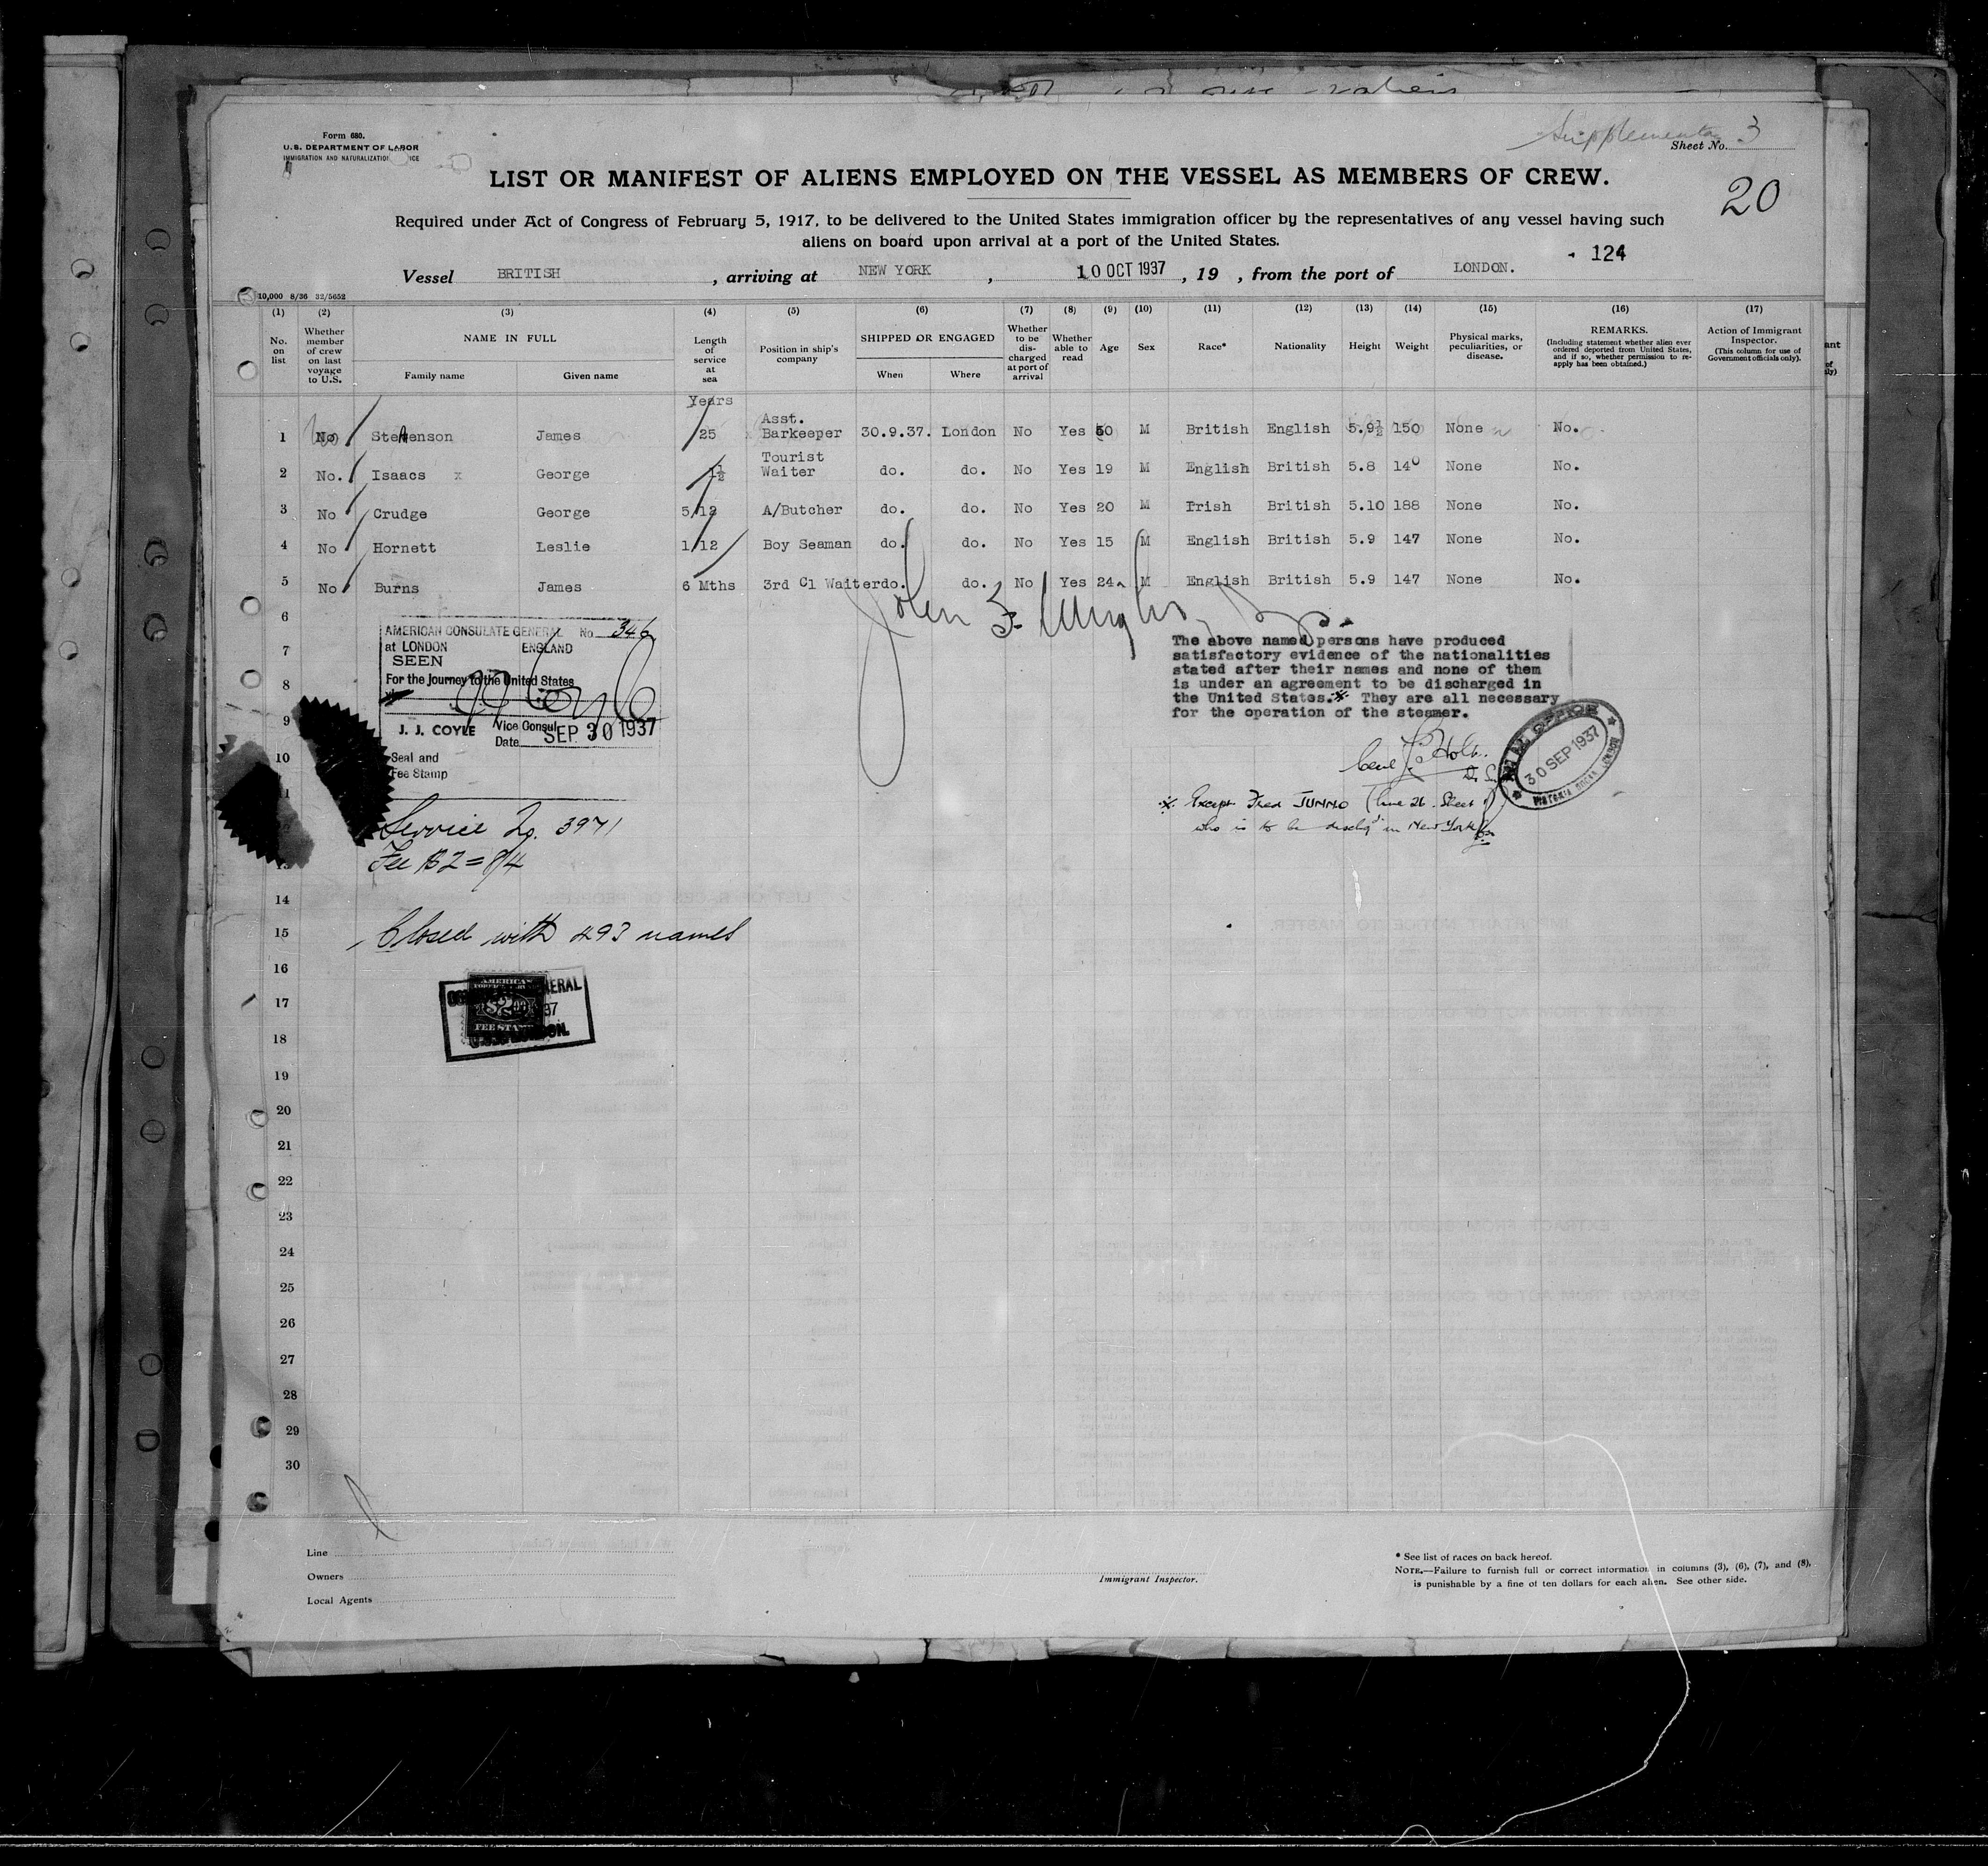 Supplementary 3
Form 680.
U.S. DEPARTMENT OF LABOR
IMMIGRATION AND NATURALIZATION
Sheet No.
LIST OR MANIFEST OF ALIENS EMPLOYED ON THE VESSEL AS MEMBERS OF CREW.
20
Required under Act of Congress of February 5, 1917, to be delivered to the United States immigration officer by the representatives of any vessel having such
aliens on board upon arrival at a port of the United States.
- 124
Vessel BRITISH, arriving at NEW YORK, 10 OCT 1937, 19 , from the port of LONDON.
10,000 8/36 32/5652
(1) (2) (3) (4) (5) (6) (7) (8) (9) (10) (11) (12) (13) (14) (15) (16) (17)
No. on list
Whether member of crew on last voyage to U.S.
NAME IN FULL
Family name Given name
Length of service at sea
Position in ship's company
SHIPPED OR ENGAGED
When Where
Whether to be discharged at port of arrival
Whether able to read
Age
Sex
Race*
Nationality
Height
Weight
Physical marks, peculiarities, or disease.
REMARKS.
(Including statement whether alien ever ordered deported from United States, and if so, whether permission to re-apply has been obtained.)
Action of Immigrant Inspector.
(This column for use of Government officials only).
Years
1 No Stevenson James 25 Asst. Barkeeper 30.9.37. London No Yes 50 M British English 5.9½ 150 None No.
2 No. Isaacs x George 1½ Tourist Waiter do. do. No Yes 19 M English British 5.8 140 None No.
3 No Crudge George 5/12 A/Butcher do. do. No Yes 20 M Irish British 5.10 188 None No.
4 No Hornett Leslie 1/12 Boy Seaman do. do. No Yes 15 M English British 5.9 147 None No.
5 No Burns James 6 Mths 3rd Cl Waiter do. do. No Yes 24 M English British 5.9 147 None No.
6
7
8
9
10
14
15
16
17
18
19
20
21
22
23
24
25
26
27
28
29
30
AMERICAN CONSULATE GENERAL No 346
at LONDON ENGLAND
SEEN
For the Journey to the United States
J. J. COYLE Vice Consul
Date SEP 30 1937
Seal and
Fee Stamp
Service No. 3971
Fee $2 = 8/4
Closed with 493 names
AMERICAN
FEE STAMP
John F.
The above named persons have produced
satisfactory evidence of the nationalities
stated after their names and none of them
is under an agreement to be discharged in
the United States.* They are all necessary
for the operation of the steamer.
30 SEP 1937
* Except Fred JUNNO (line 26 Sheet
who is to be dischg'd in New York
Line
Owners
Local Agents
Immigrant Inspector.
* See list of races on back hereof.
NOTE.—Failure to furnish full or correct information in columns (3), (6), (7), and (8),
is punishable by a fine of ten dollars for each alien. See other side.